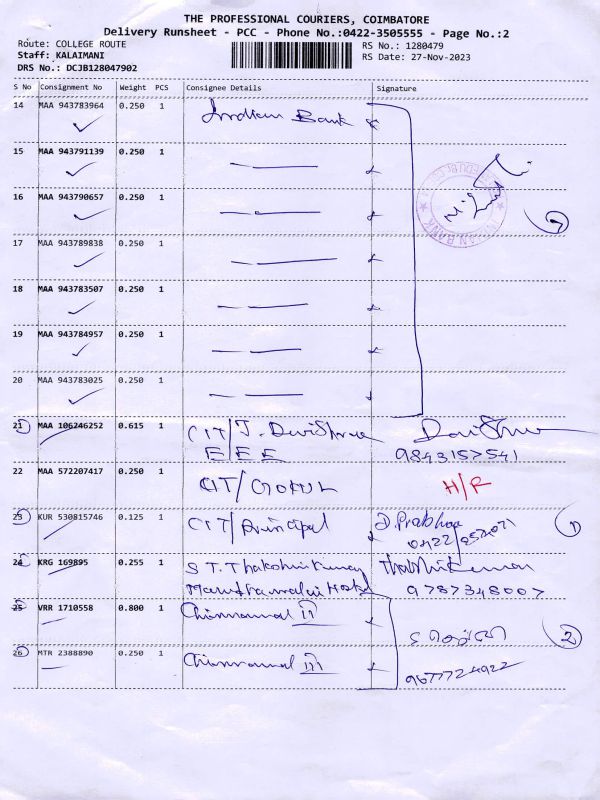 THE PROFESSIONAL COURIERS, COIMBATORE
Delivery Runsheet - PCC - Phone No.:0422-3505555 - Page No.:2
Route: COLLEGE ROUTE
Staff: KALAIMANI
DRS No.: DCJB128047902
RS No.: 1280479
RS Date: 27-Nov-2023
S No Consignment No Weight PCS Consignee Details Signature
14 MAA 943783964 0.250 1 Indian Bank
15 MAA 943791139 0.250 1
16 MAA 943790657 0.250 1
INDIAN BANK
7
17 MAA 943789838 0.250 1
18 MAA 943783507 0.250 1
19 MAA 943784957 0.250 1
20 MAA 943783025 0.250 1
21 MAA 106246252 0.615 1 CIT/J. DeviShree DeviShree
EEE 9843157541
22 MAA 572207417 0.250 1 CIT/GOKUL H/R
23 KUR 530815746 0.125 1 CIT/principal D.Prabhaa
0422/
1
24 KRG 169895 0.255 1 S T. Thakshinkumar
9787348007
25 VRR 1710558 0.800 1 Chinnammal
2
26 MTR 2388890 0.250 1 Chinnammal
9677724922